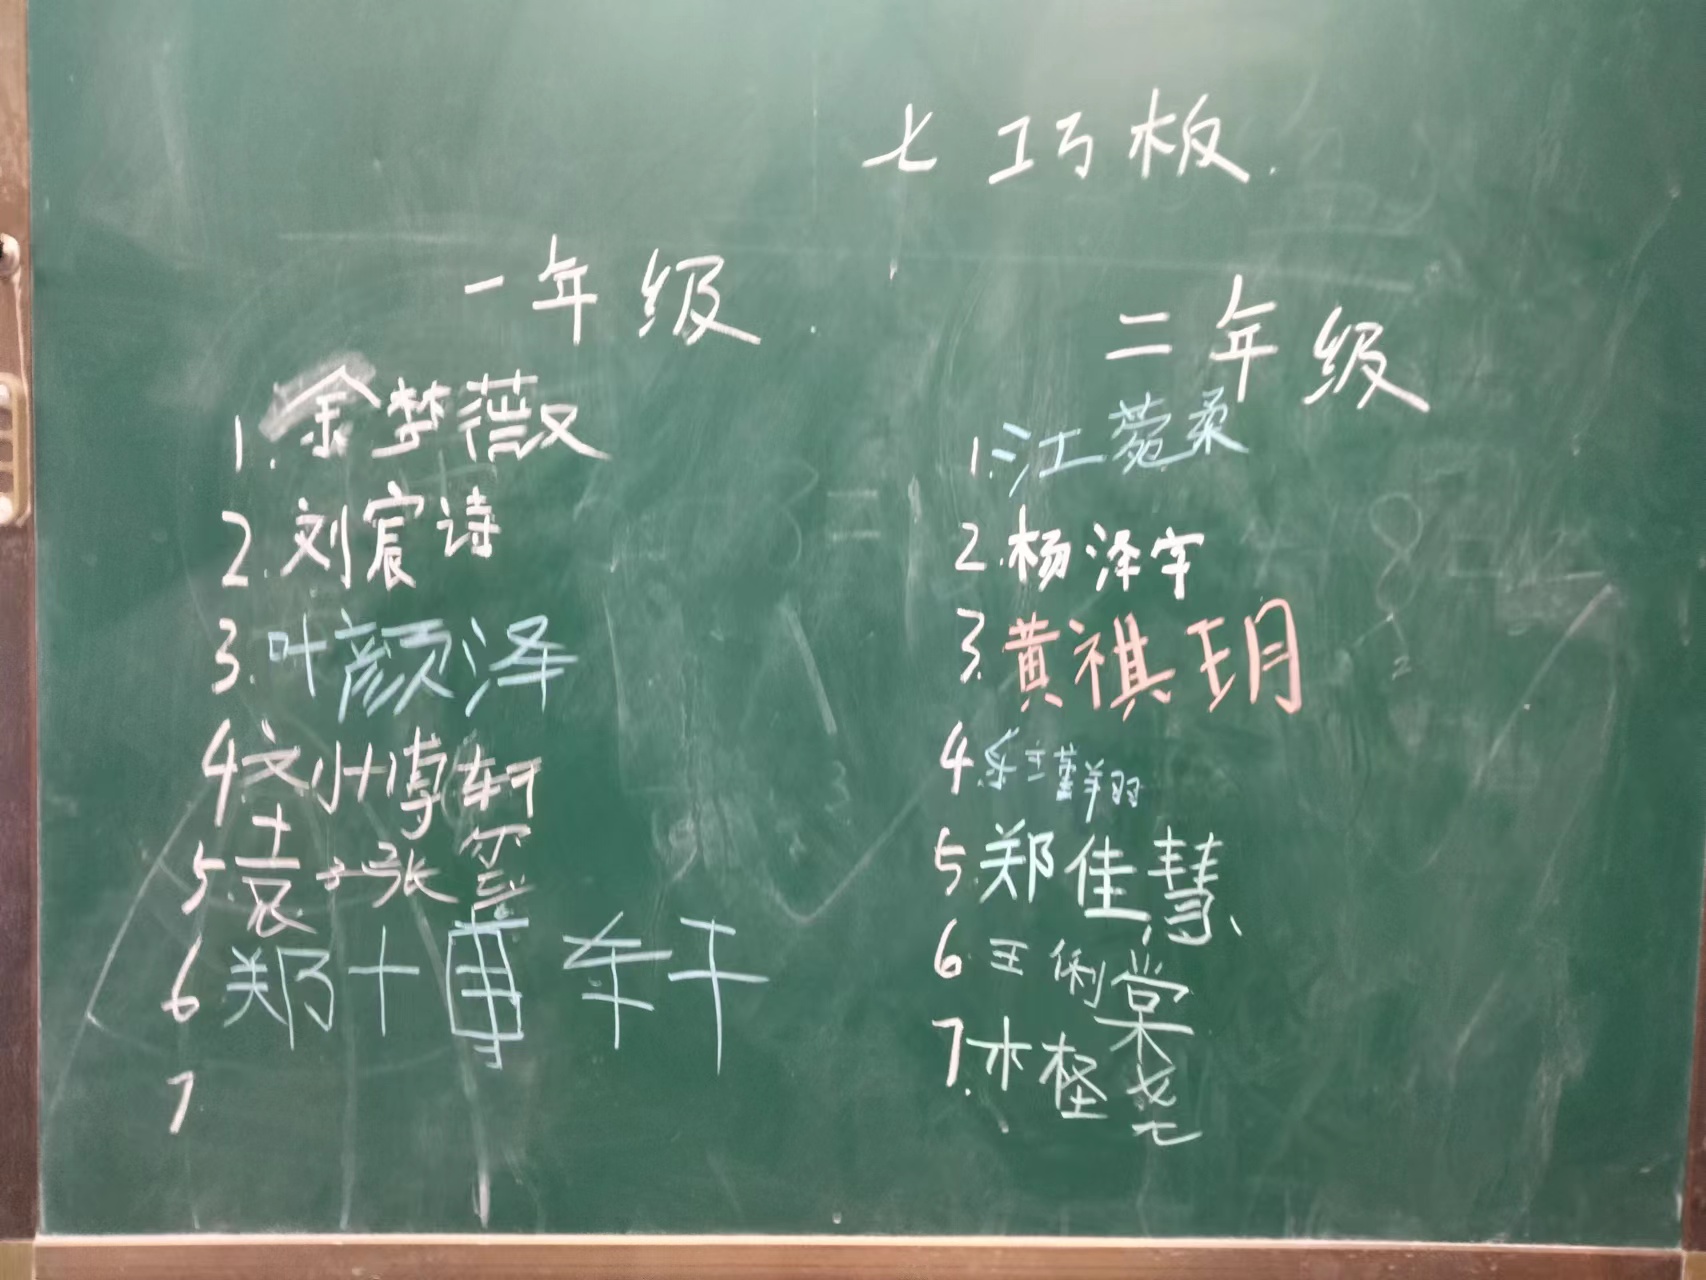 七巧板
一年级
1. 余梦薇
2. 刘宸诗
3. 叶颜泽
4 刘博轩
5. 袁张玺
6 郑博轩
7
二年级
1. 江菀柔
2. 杨泽宇
3. 黄祺玥
4. 翔
5. 郑佳慧
6. 王俐棠
7. 林柽尧